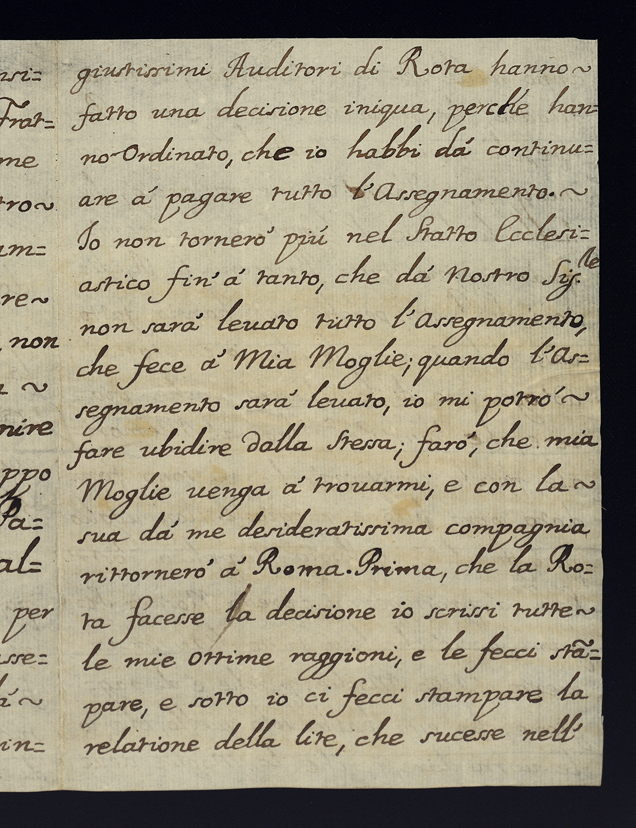 nsi=
Frat=
me
tro~
am=
re~
non
~
nire
ppo
Pa=
al=
per
sse=
á~
in=
giustissimi Auditori di Rota hanno~
fatto una decisione iniqua, perché han=
no Ordinato, che io habbi dá continu=
are á pagare tutto l'Assegnamento.~
Io non torneró piú nel Statto Ecclesi=
astico fin' á tanto, che dá Nostro Sig.re
non sará leuato tutto l'Assegnamento,
che fece á Mia Moglie; quando l'As=
segnamento sará leuato, io mi potró~
fare ubidire dalla stessa; faró, che mia
Moglie uenga á trouarmi, e con la~
sua dá me desideratissima compagnia
rittorneró á Roma. Prima, che la Ro=
ta facesse la decisione io scrissi tutte~
le mie ottime raggioni, e le fecci stã=
pare, e sotto io ci fecci stampare la
relatione della lite, che sucesse nell'